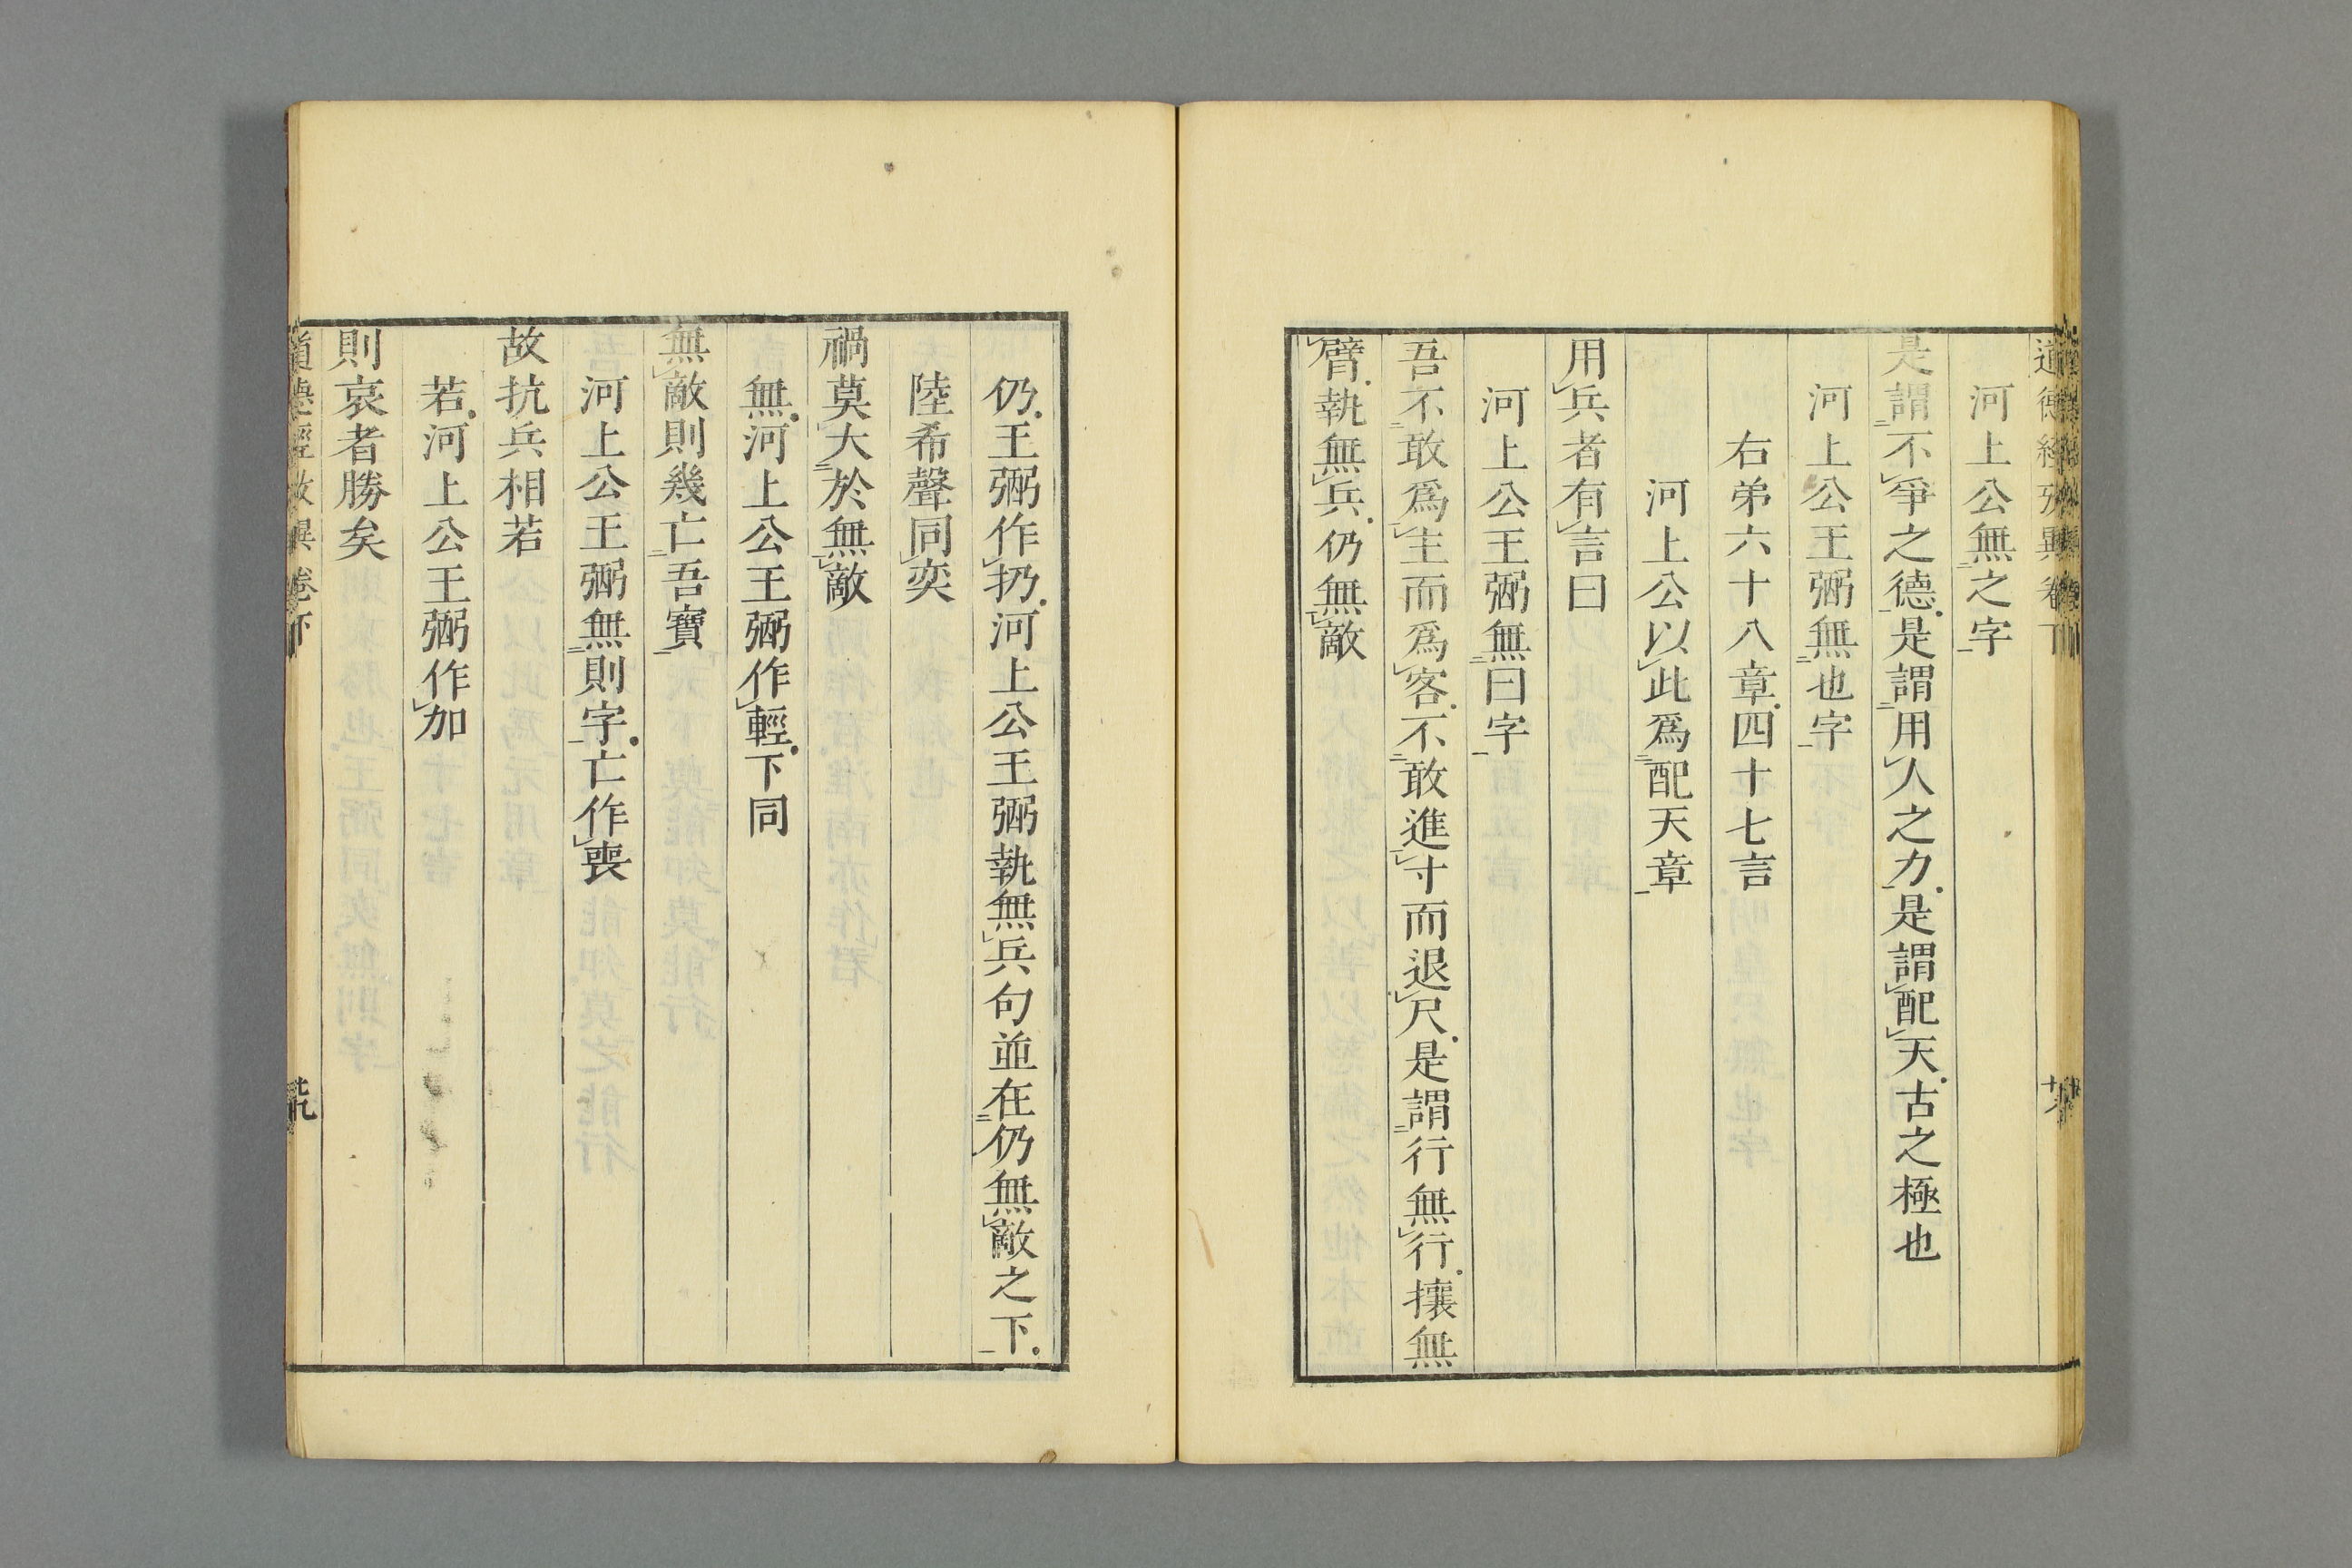 道德經攷異卷下
河上公無之字
是謂不爭之德是謂用人之力是謂配天古之極也
河上公王弼無也字
右弟六十八章四十七言
河上公以此爲配天章
用兵者有言曰
河上公王弼無曰字
吾不敢爲主而爲客不敢進寸而退尺是謂行無行攘無
臂執無兵仍無敵
仍王弼作扔河上公王弼執無兵句並在仍無敵之下
陸希聲同奕
禍莫大於無敵
無河上公王弼作輕下同
無敵則幾亡吾寶
河上公王弼無則字亡作喪
故抗兵相若
若河上公王弼作加
則哀者勝矣
道德經攷異卷下